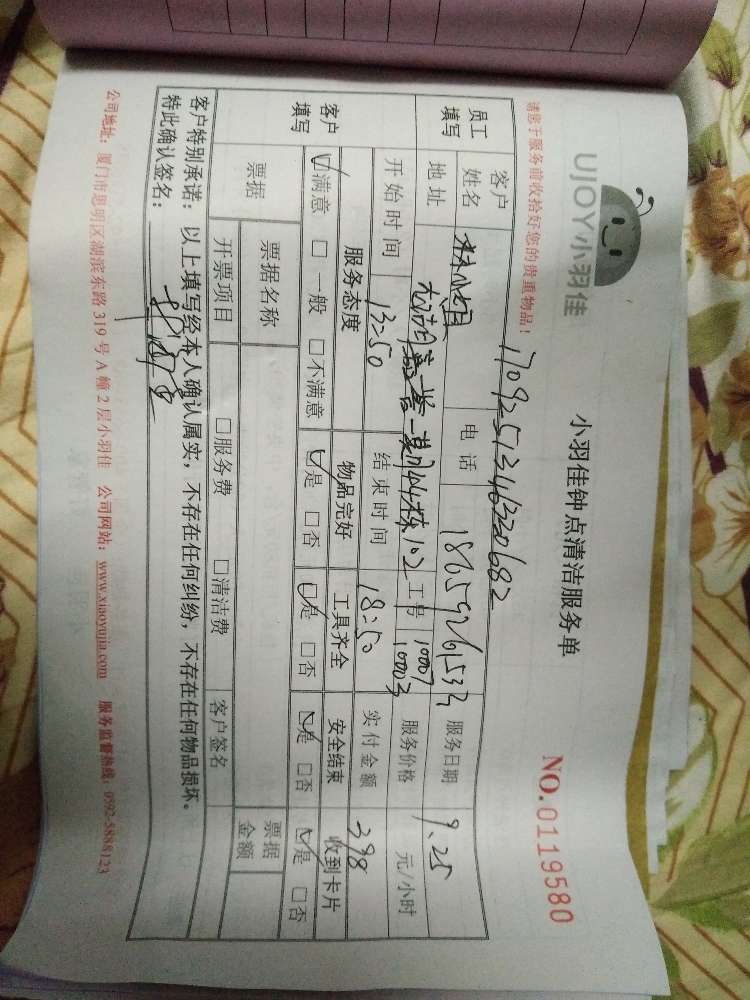 UJOY小羽佳
小羽佳钟点清洁服务单
NO.0119580
请您于服务前收拾好您的贵重物品!
1709251346320682
员工填写 客户姓名 林小姐 电话 18659261533 服务日期 9.25
地址 一期44栋102 工号 10007 10003 服务价格 元/小时
开始时间 13:50 结束时间 18:50 实付金额 398
客户填写 服务态度 物品完好 工具齐全 安全结束 收到卡片
☑满意 □一般 □不满意 ☑是 □否 ☑是 □否 ☑是 □否 ☑是 □否
票据 票据名称 票据金额
开票项目 □服务费 □清洁费 客户签名
客户特别承诺:以上填写经本人确认属实,不存在任何纠纷,不存在任何物品损坏。
特此确认签名:
公司地址:厦门市思明区湖滨东路319号A幢2层小羽佳 公司网站:www.xiaoyujia.com 服务监督热线:0592-5888123